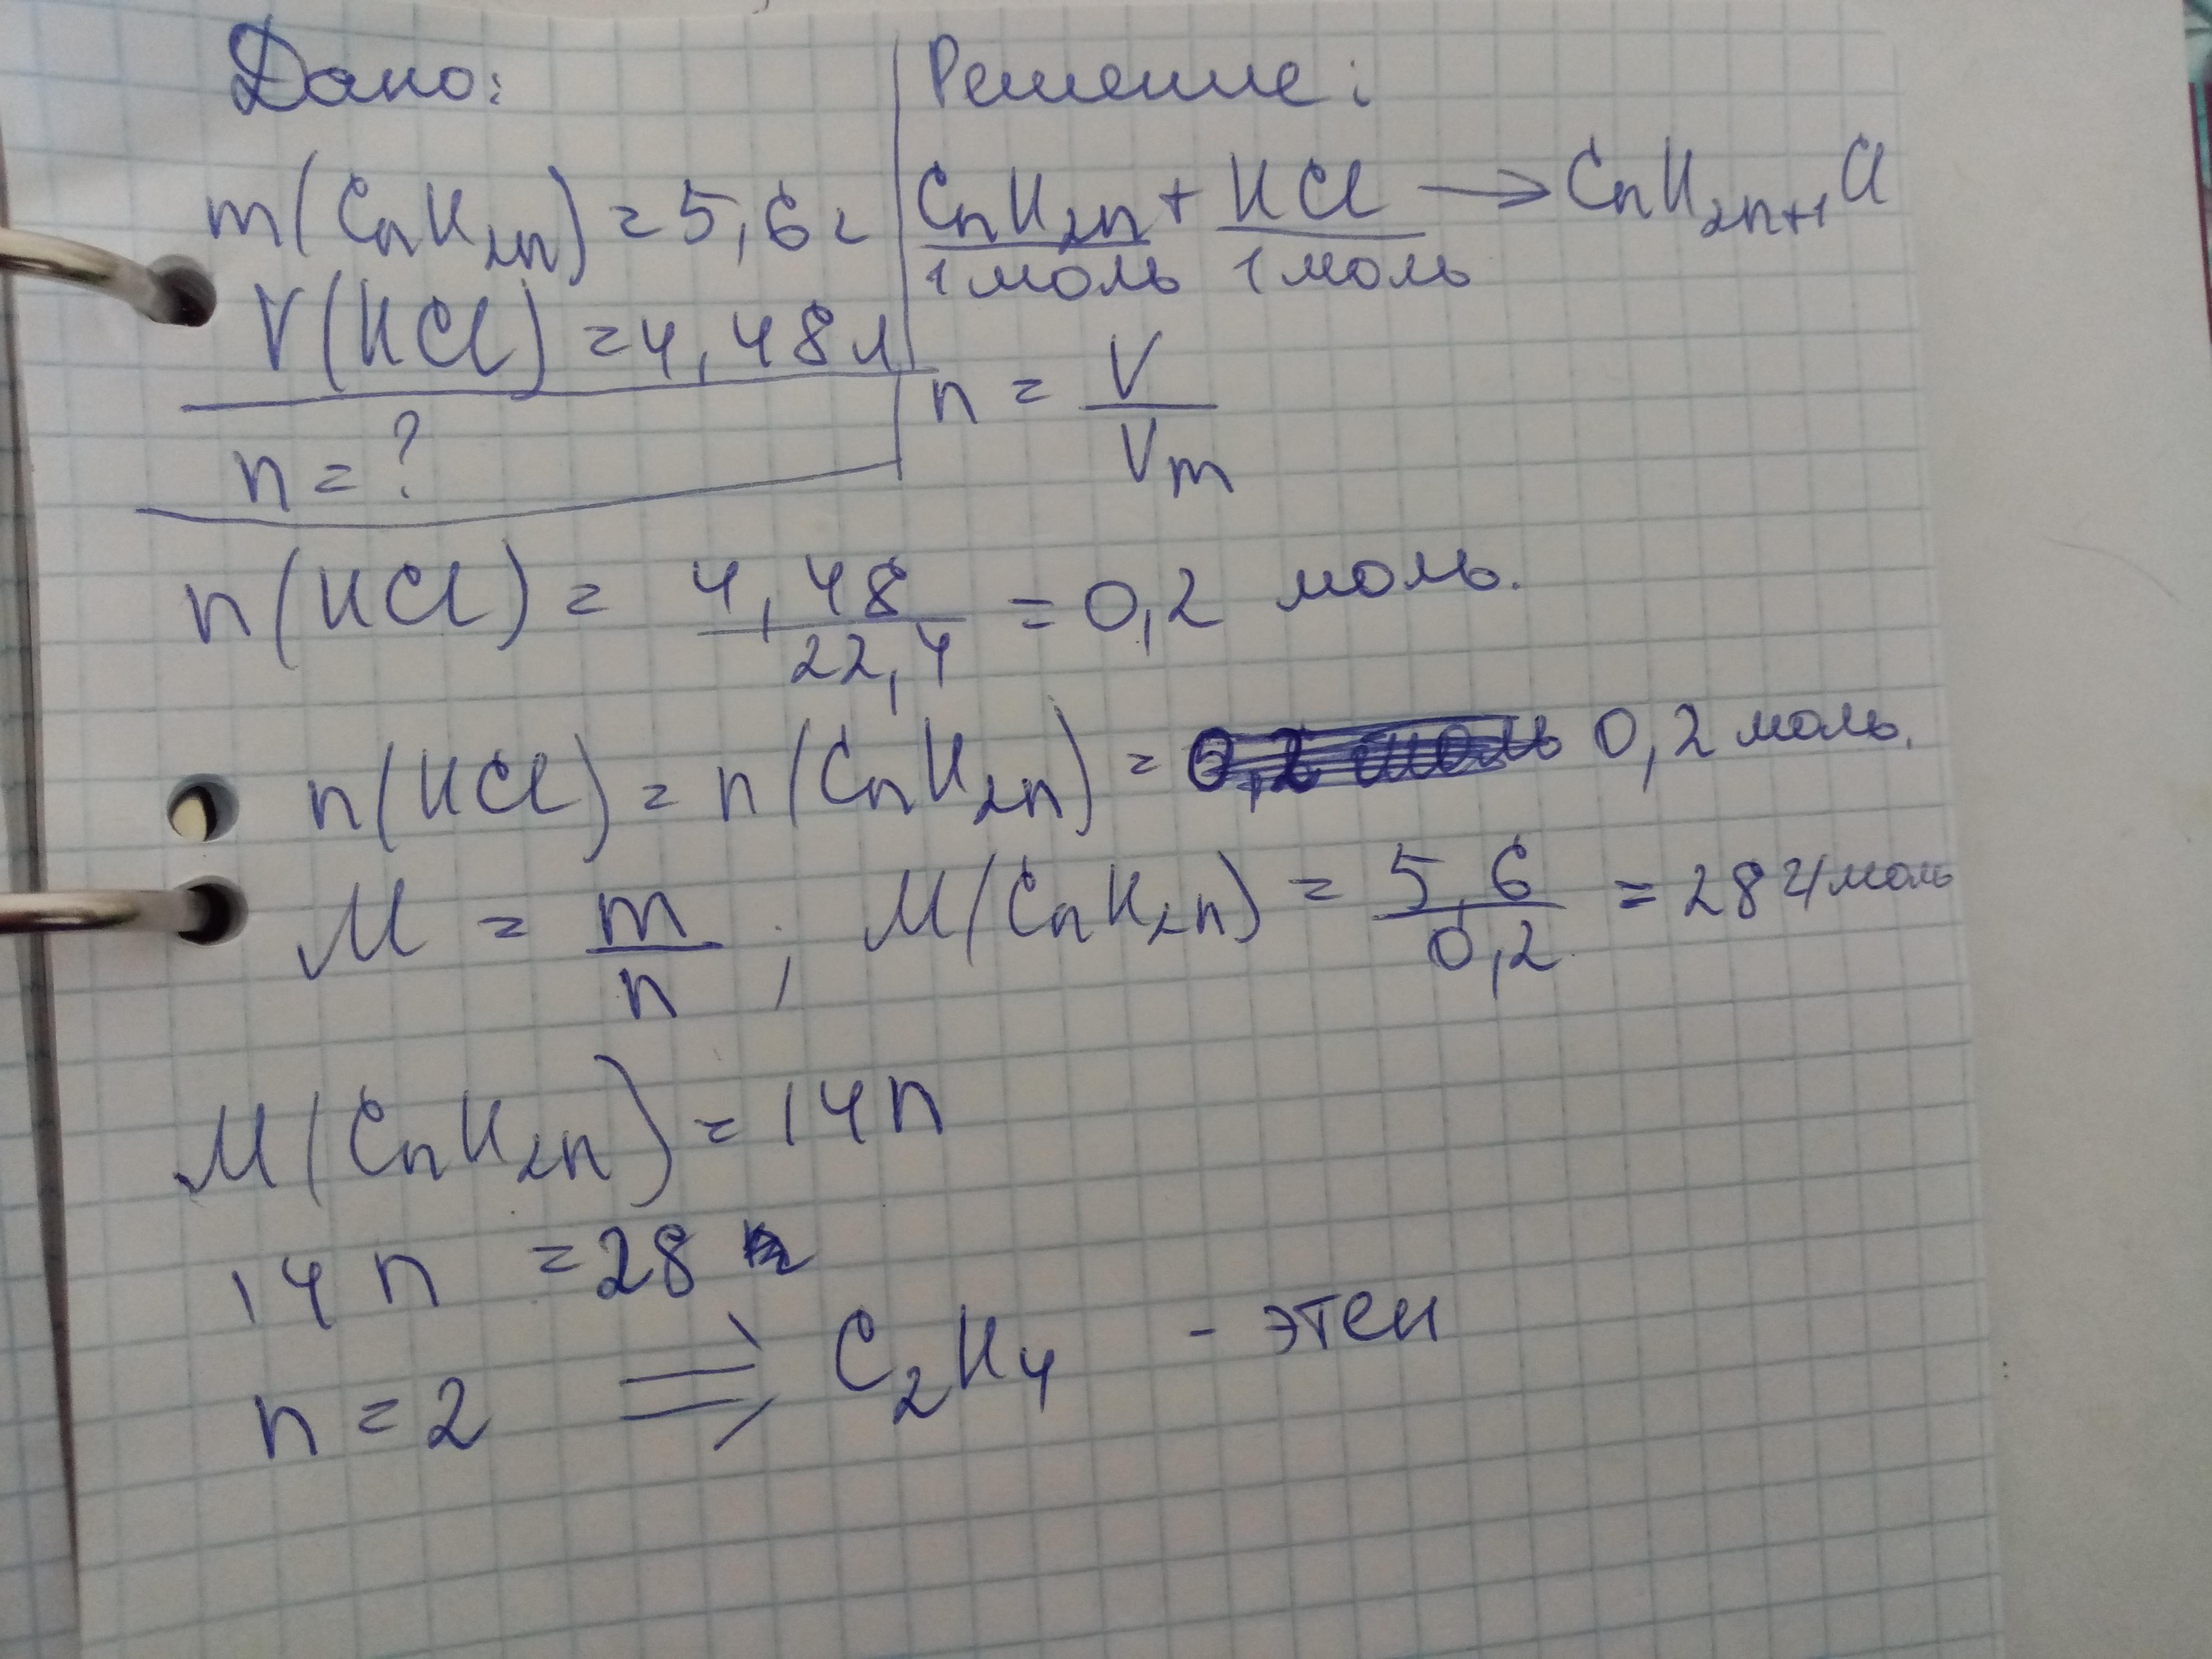 Дано:
m(CnH2n) = 5,6 г
V(HCl) = 4,48 л
n = ?
Решение:
CnH2n + HCl → CnH2n+1Cl
1 моль 1 моль
n = V/Vm
n(HCl) = 4,48/22,4 = 0,2 моль.
n(HCl) = n(CnH2n) = 0,2 моль.
M = m/n ; M(CnH2n) = 5,6/0,2 = 28 г/моль
M(CnH2n) = 14n
14n = 28
n = 2 ⇒ C2H4 - этен